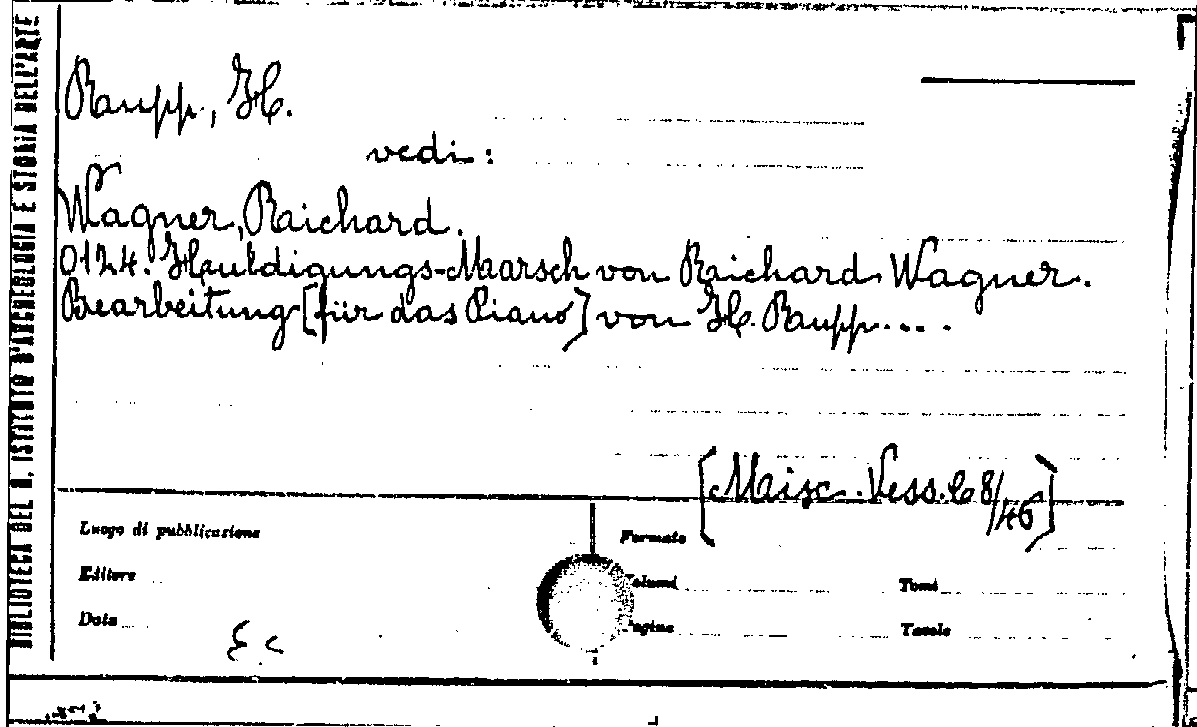 BIBLIOTECA DEL R. ISTITUTO D'ARCHEOLOGIA E STORIA DELL'ARTE
Raupp, H.
vedi:
Wagner, Raichard.
0124. Hauldigungs-Maarsch von Raichard Wagner.
Bearbeitung [für das Piano] von H. Raupp....
[Maisc. Vess. C 8/46]
Luogo di pubblicazione
Formato
Editore
Volumi
Tomi
Data
Pagine
Tavole